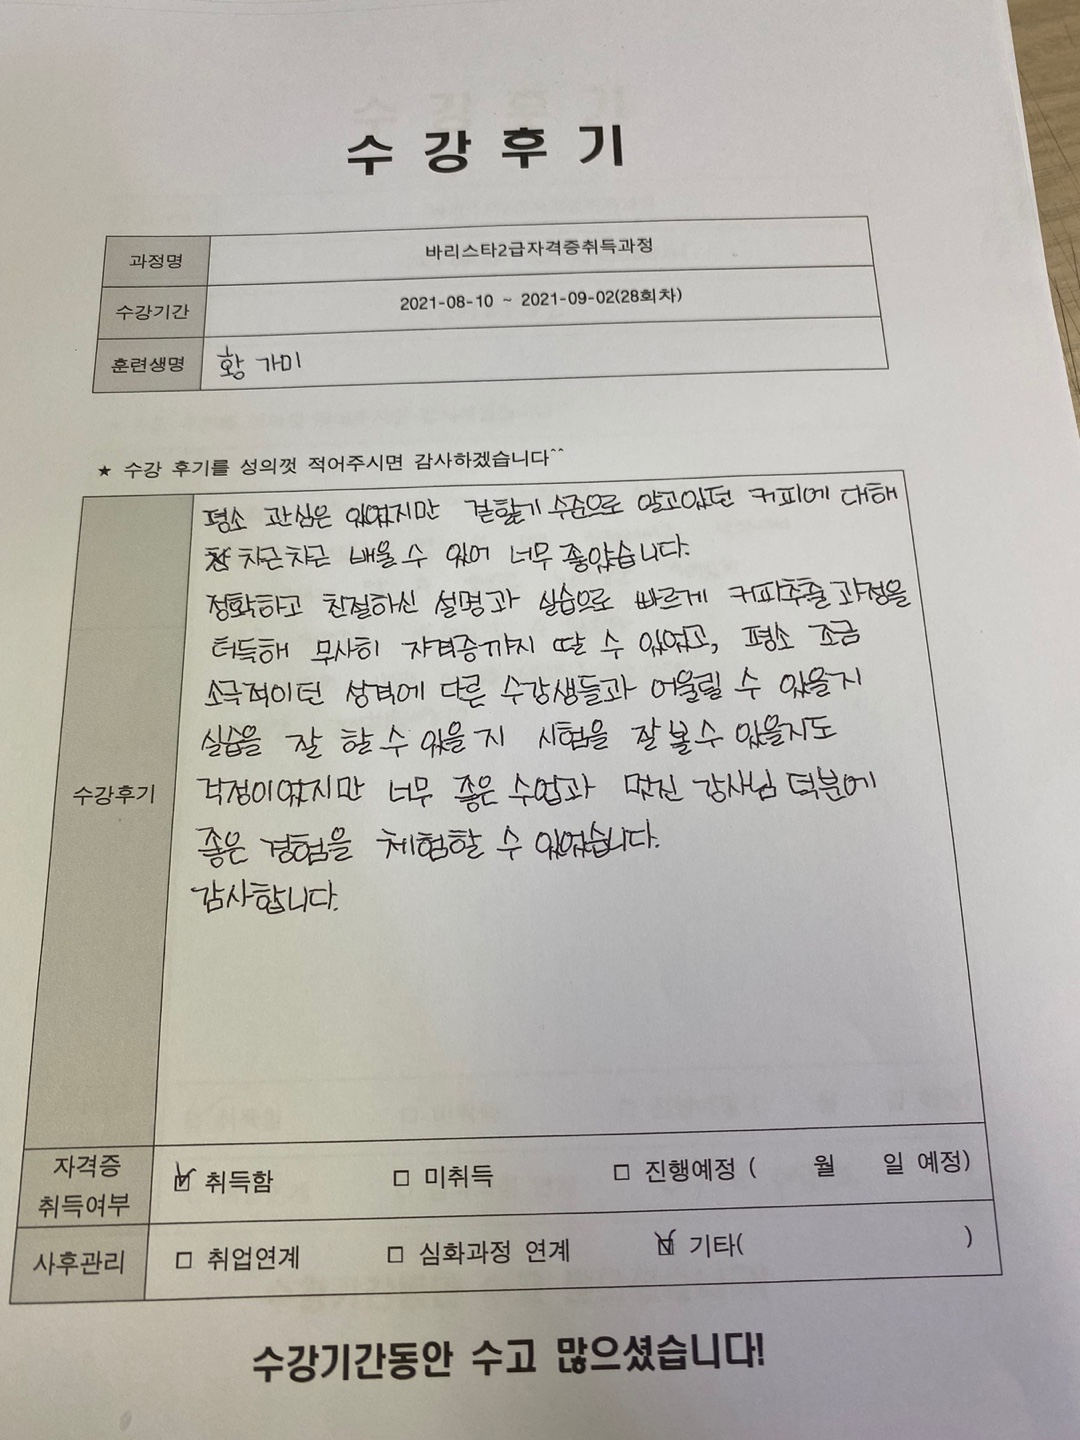 수강후기
과정명 바리스타2급자격증취득과정
수강기간 2021-08-10 ~ 2021-09-02(28회차)
훈련생명 황가미
★ 수강 후기를 성의껏 적어주시면 감사하겠습니다^^
평소 관심은 있었지만 겉핥기 수준으로 알고있던 커피에 대해
차근차근 배울 수 있어 너무 좋았습니다.
정확하고 친절하신 설명과 실습으로 빠르게 커피추출과정을
터득해 무사히 자격증까지 딸 수 있었고, 평소 조금
소극적이던 성격에 다른 수강생들과 어울릴 수 있을지
실습을 잘 할 수 있을지 시험을 잘 볼 수 있을지도
수강후기
걱정이었지만 너무 좋은 수업과 멋진 강사님 덕분에
좋은 경험을 체험할 수 있었습니다.
감사합니다.
자격증
취득여부
☑ 취득함 □ 미취득 □ 진행예정 ( 월 일 예정)
사후관리 □ 취업연계 □ 심화과정 연계 ☑ 기타( )
수강기간동안 수고 많으셨습니다!